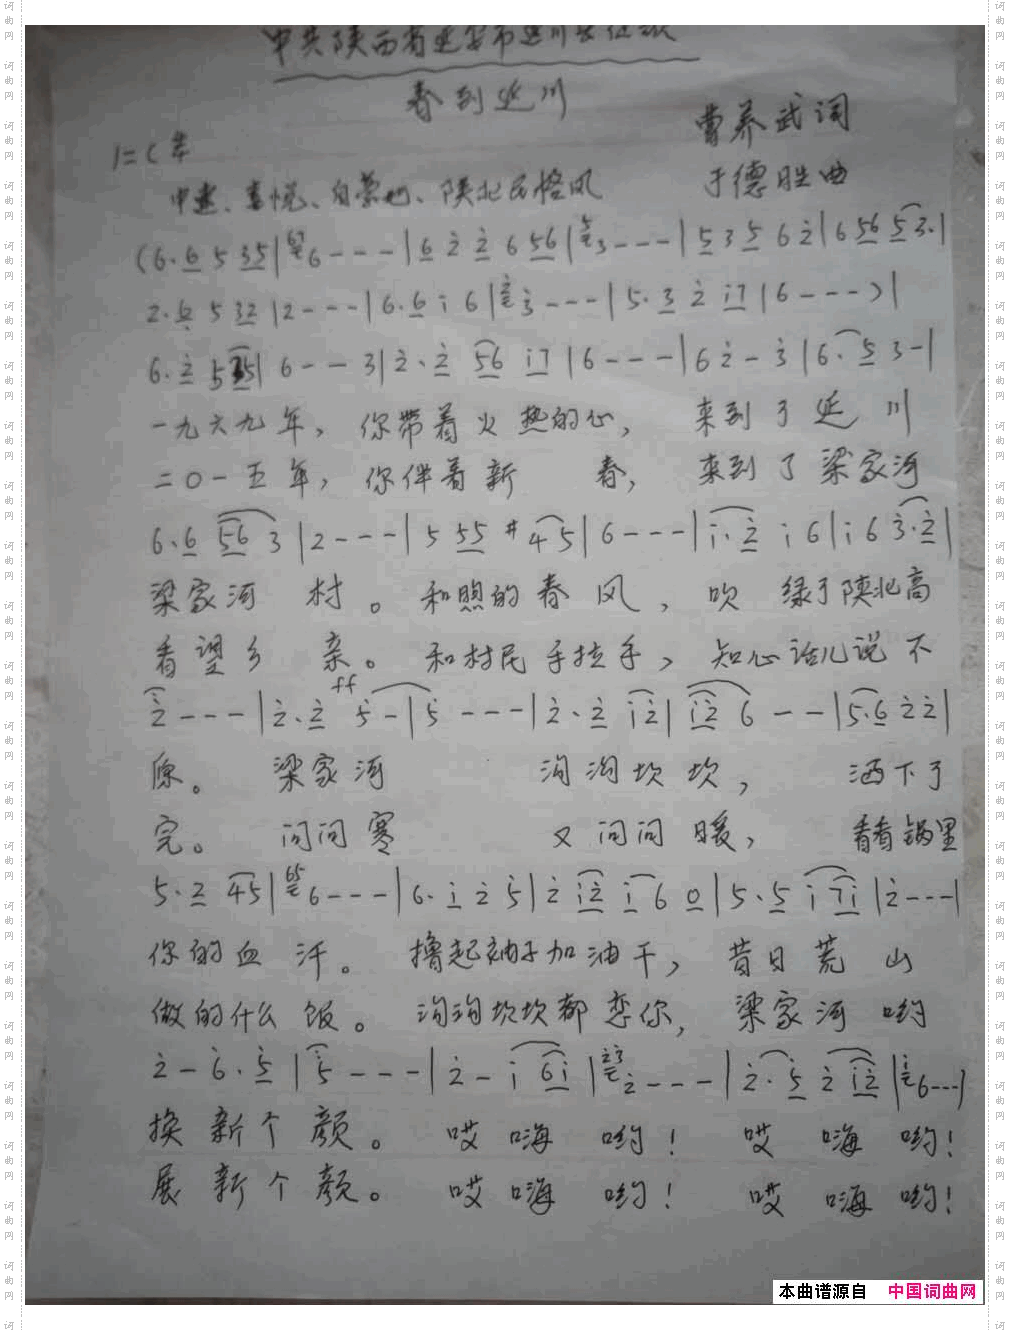 中共陕西省延安市延川县
春到延川
1=C
曹养武词
中速、喜悦、自豪地、陕北民格风
于德胜曲
(6·6 5 35|6----|6 2 2 6 56|3----|5 3 5 6 2|6 56 53·|
2·6 5 32|2----|6·6 i 6|3----|5·3 2 i7|6----)|
6·2 5 35|6---3|2·2 56 i7|6----|6 2-3|6·5 3-|
一九六九年，你带着火热的心，来到了延川
二0一五年，你伴着新春，来到了梁家河
6·6 56 3|2----|5 55 #45|6----|i·2 i 6|i 6 3·2|
梁家河村。和煦的春风，吹绿了陕北高
看望乡亲。和村民手拉手，知心话儿说不
ff
2----|2·2 5-|5----|2·2 i2|i2 6--|5·6 22|
原。梁家河沟沟坎坎，洒下了
完。问问寒又问问暖，看看锅里
5·2 45|6----|6·i 2 5|2 i2 i6 0|5·5 i 7i|2---|
你的血汗。撸起袖子加油干，昔日荒山
做的什么饭。沟沟坎坎都恋你，梁家河哟
2-6·5|5----|2-i 6i|2----|2·5 2 i2|6---|
换新个颜。哎嗨哟！哎嗨哟！
展新个颜。哎嗨哟！哎嗨哟！
本曲谱源自 中国词曲网